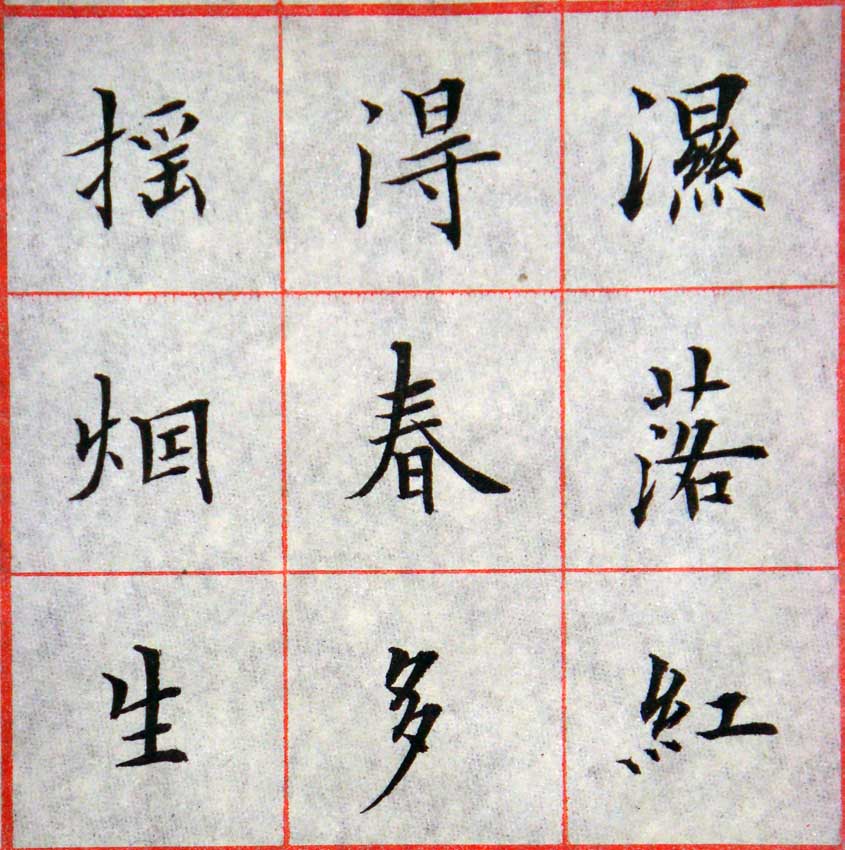 濕落紅
得春多
摇烟生